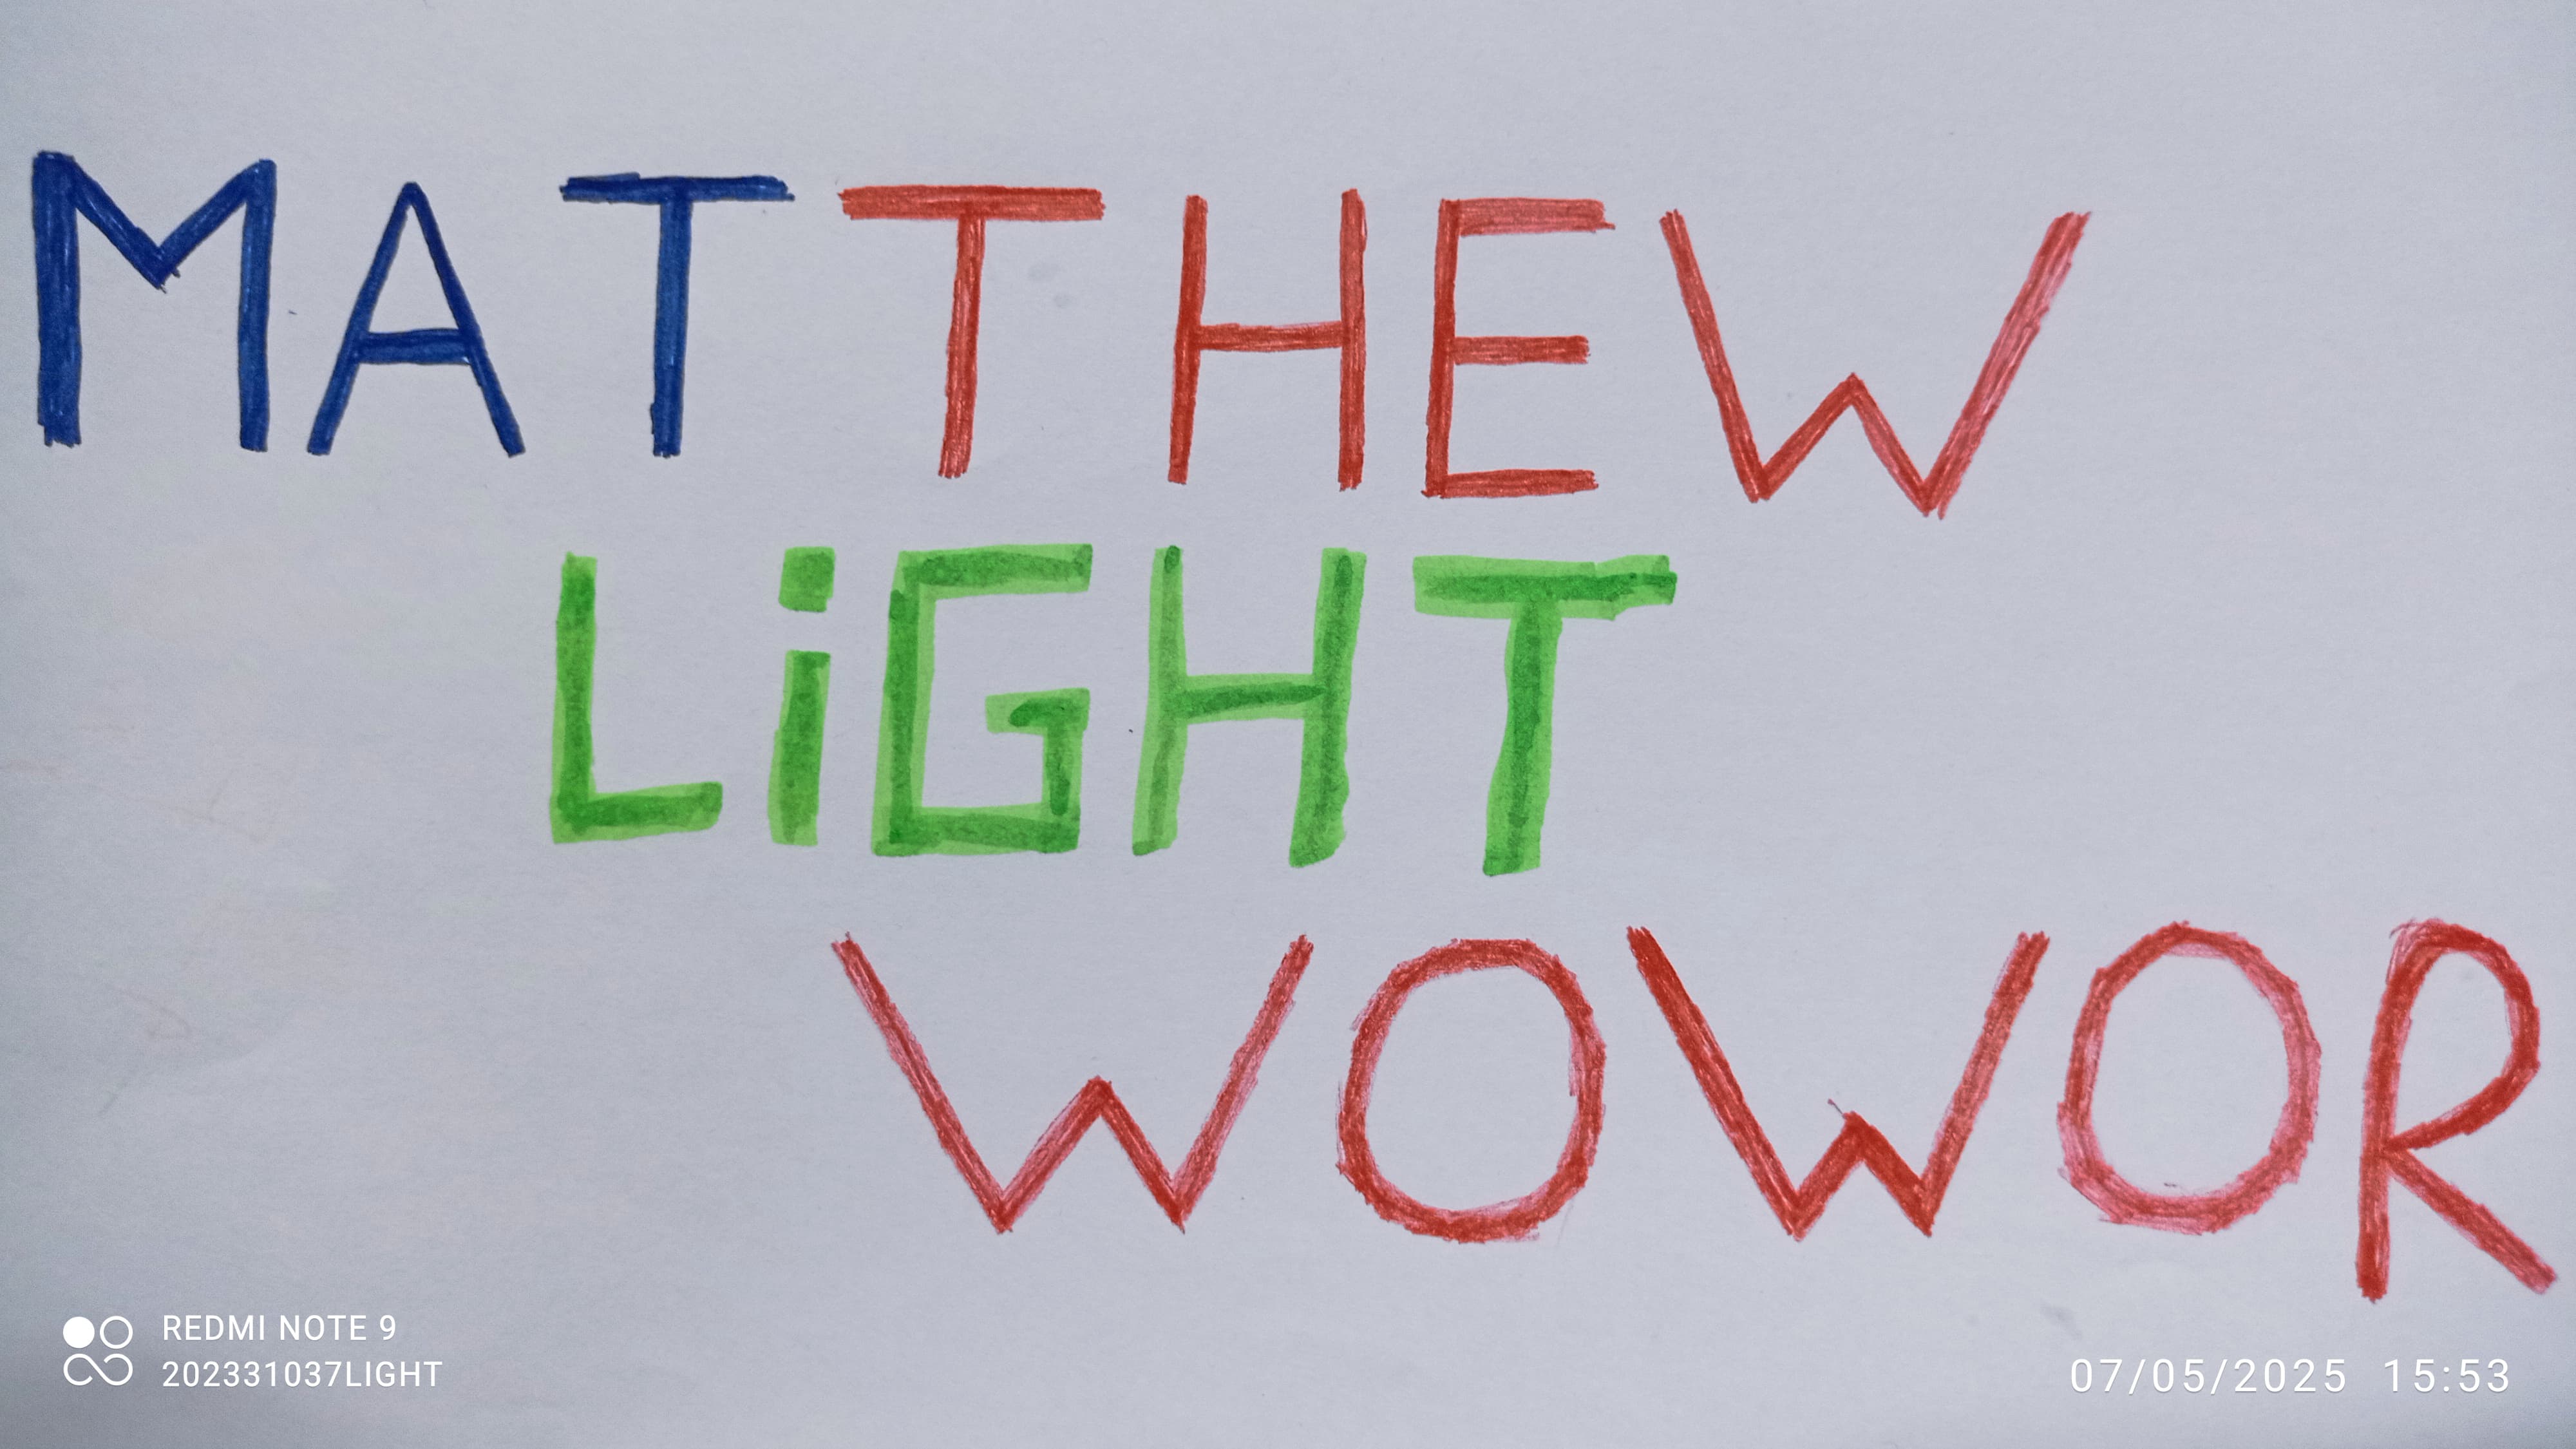 MATTHEW
LiGHT
WOWOR
REDMI NOTE 9
202331037LIGHT
07/05/2025 15:53